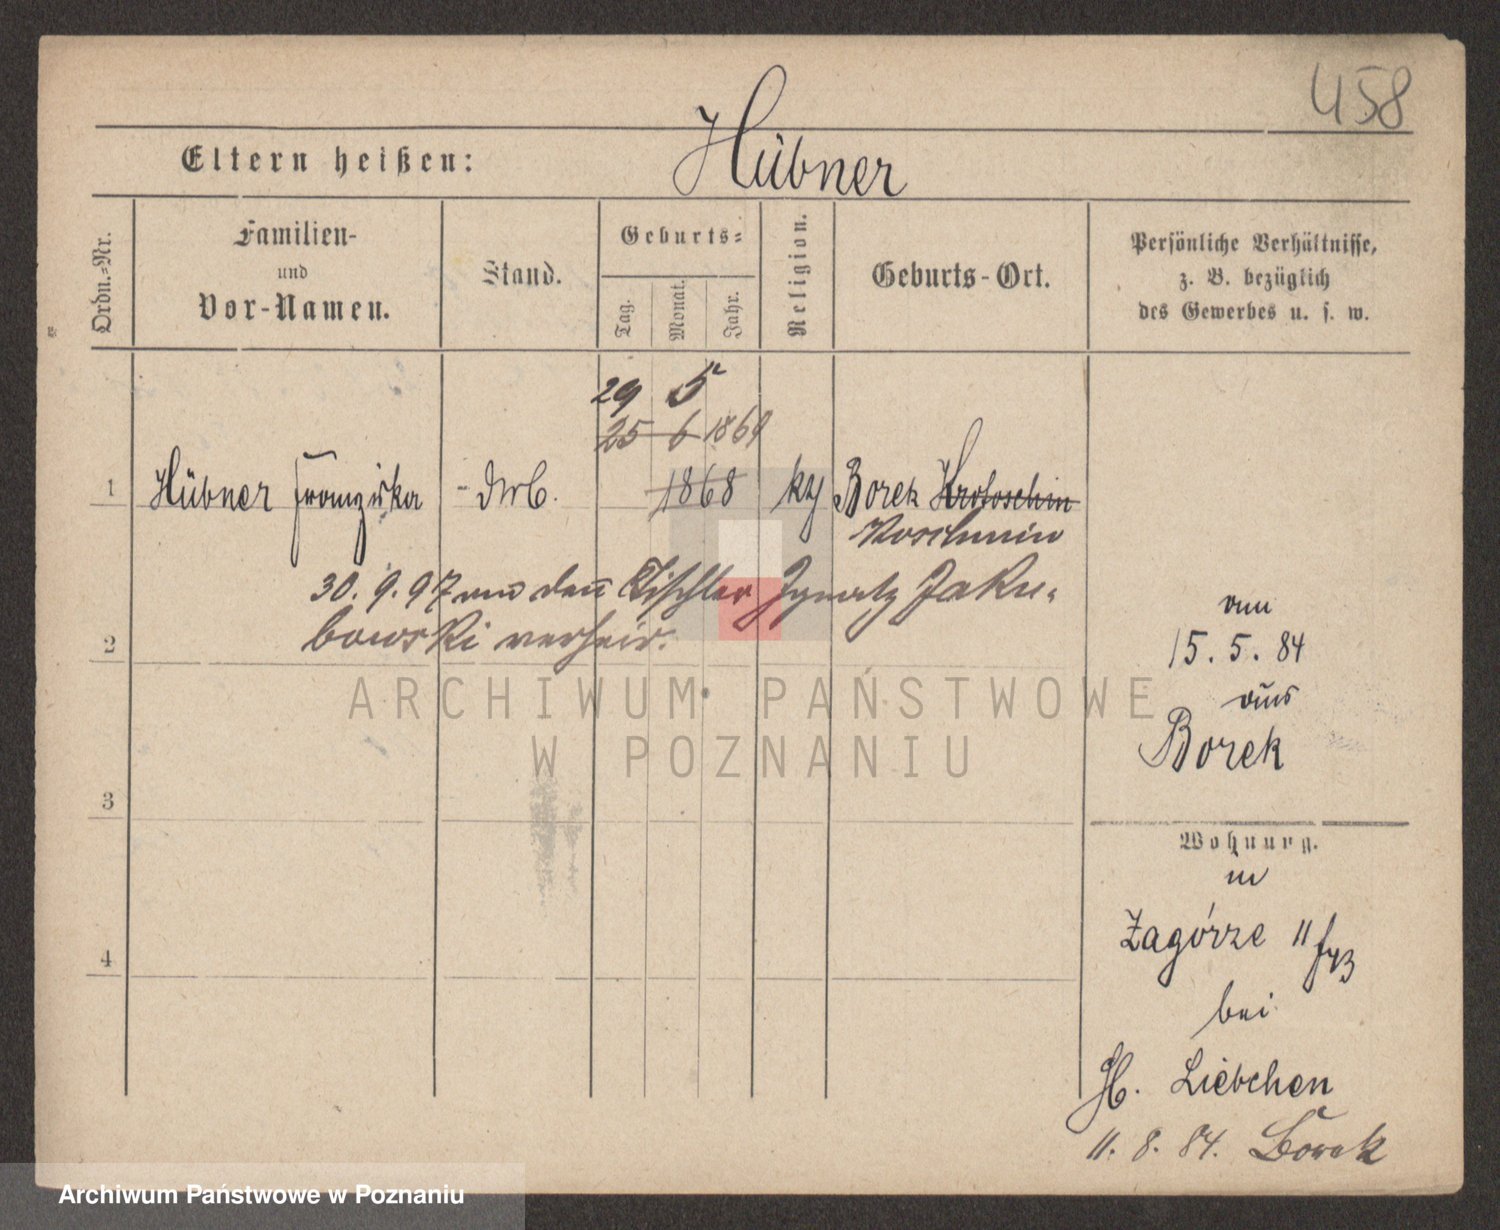 458
Eltern heißen: Hübner
Ordn.-Nr.
Familien- und Vor-Namen.
Stand.
Geburts-
Tag. Monat. Jahr.
Religion.
Geburts-Ort.
Persönliche Verhältnisse,
z. B. bezüglich
des Gewerbes u. s. w.
29 5
25 6 1869
1 Hübner Franziska 1868 Borek Krotoschin
Koschmin
30. 9. 97 den Tischler Ignatz Jaku-
bowski verheir.
2
am
15. 5. 84
aus
Borek
3
Wohnung.
in
4
Zagórze 11
bei
H. Liebchen
11. 8. 84. Borek
ARCHIWUM PAŃSTWOWE
W POZNANIU
Archiwum Państwowe w Poznaniu